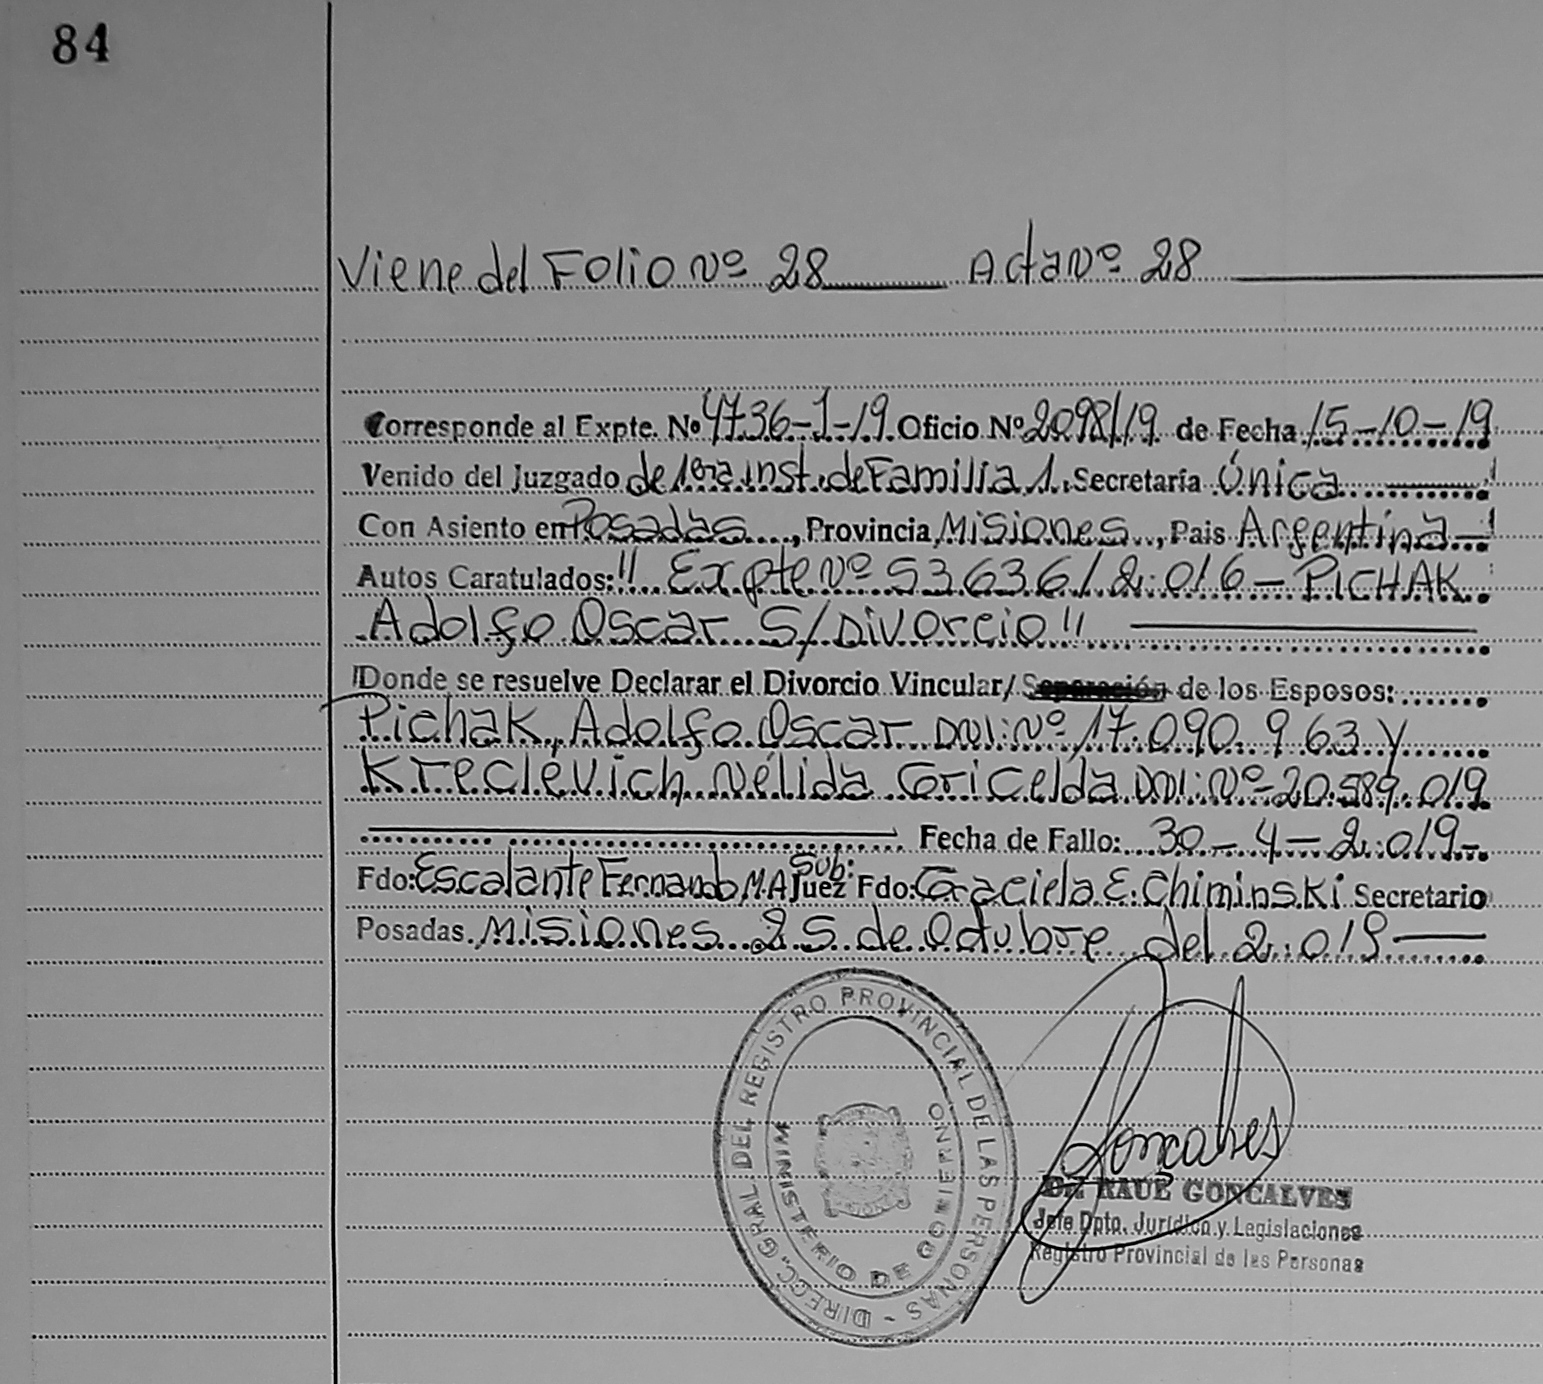 84
Viene del Folio Nº 28 Acta Nº 28
Corresponde al Expte. Nº 4736-1-19 Oficio Nº 2098/19 de Fecha 15-10-19
Venido del Juzgado de 1era inst. de Familia 1, Secretaría Única
Con Asiento en Posadas, Provincia Misiones, Pais Argentina
Autos Caratulados: "Expte Nº 53636/2.016 - PICHAK
Adolfo Oscar S/Divorcio"
Donde se resuelve Declarar el Divorcio Vincular/ Separación de los Esposos:
Pichak, Adolfo Oscar DNI: Nº 17.090.963 y
Kreclévich, Nélida Gricelda DNI: Nº 20.589.019
Fecha de Fallo: 30-4-2.019-
Fdo: Escalante Fernando M.A Sub: Juez Fdo: Graciela E. Chiminski Secretario
Posadas, Misiones 25 de Octubre del 2.019
DIRECC. GRAL DEL REGISTRO PROVINCIAL DE LAS PERSONAS -
MINISTERIO DE GOBIERNO
Goncalves
Dr. RAUL GONCALVES
Jefe Dpto. Jurídico y Legislaciones
Registro Provincial de las Personas